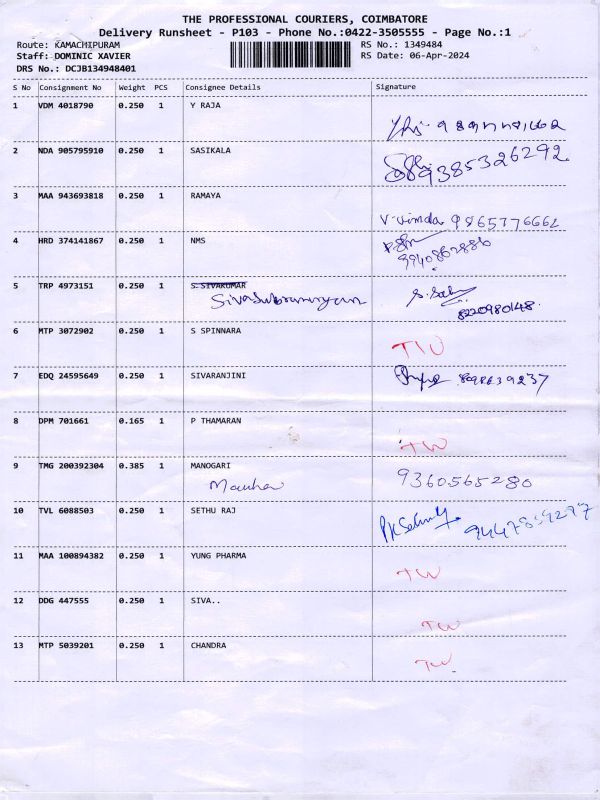 THE PROFESSIONAL COURIERS, COIMBATORE
Delivery Runsheet - P103 - Phone No.:0422-3505555 - Page No.:1
Route: KAMACHIPURAM RS No.: 1349484
Staff: DOMINIC XAVIER RS Date: 06-Apr-2024
DRS No.: DCJB134948401
S No Consignment No Weight PCS Consignee Details Signature
1 VDM 4018790 0.250 1 Y RAJA
2 NDA 905795910 0.250 1 SASIKALA 9385326292
3 MAA 943693818 0.250 1 RAMAYA
V. Vimala 9865776662
4 HRD 374141867 0.250 1 NMS
9940862886
5 TRP 4973151 0.250 1 S.SIVAKUMAR
Sivasubramaniyam
8220980148
6 MTP 3072902 0.250 1 S SPINNARA
TW
7 EDQ 24595649 0.250 1 SIVARANJINI
8 DPM 701661 0.165 1 P THAMARAN
TW
9 TMG 200392304 0.385 1 MANOGARI
9360565280
10 TVL 6088503 0.250 1 SETHU RAJ
9447859297
11 MAA 100894382 0.250 1 YUNG PHARMA
TW
12 DDG 447555 0.250 1 SIVA..
TW
13 MTP 5039201 0.250 1 CHANDRA
TW